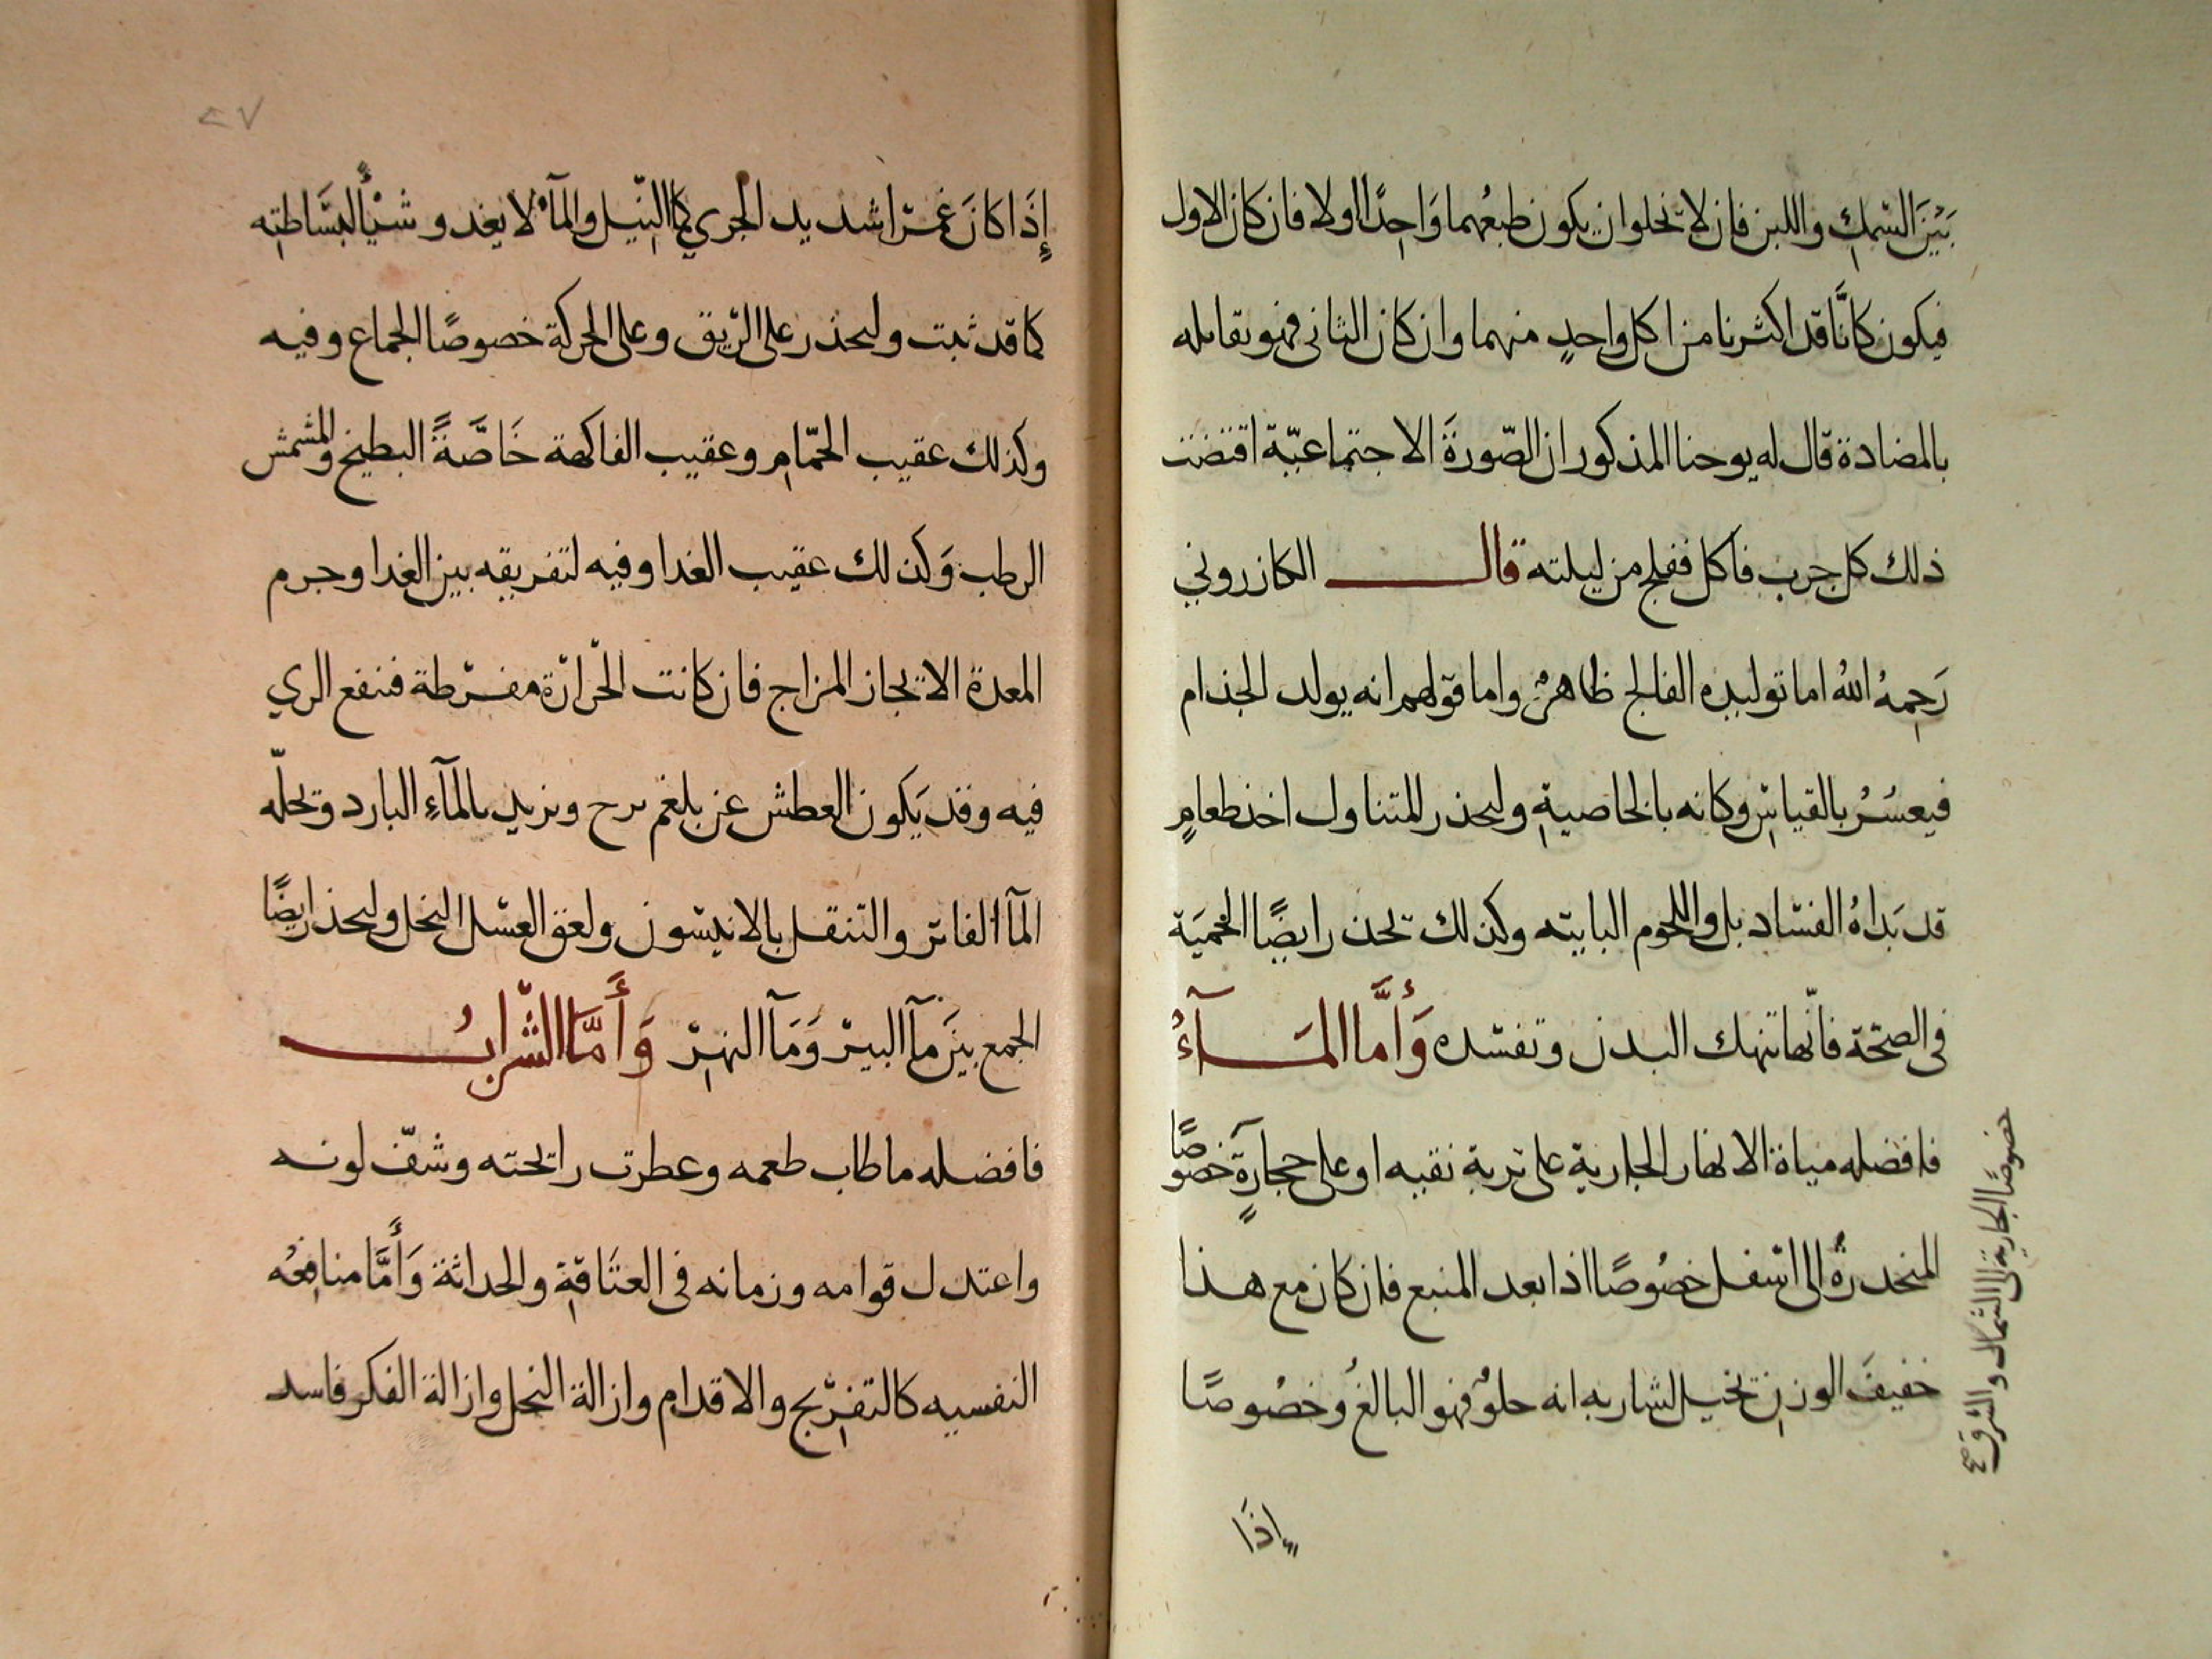 بَيْنَ السَّمَكِ واللبن فان لا تخلوا ان يكون طبعُهما وَاحِدًا اولا فان كان الاول
فيكون كانَّا قد اكثرنا من اكل واحدٍ منهما وان كان الثانى فهو يقابله
بالمضادة قال له يوحنا المذكور ان الصّورةَ الاجتماعيّة اقتضت
ذلك كل جرب فاكل ففلج من ليلته قال الكازروني
رَحِمهُ اللهُ اما توليده الفالج ظاهرٌ واما قولهم انه يولد الجذام
فيعسُرُ بالقياسِ وكانه بالخاصيةِ وليحذر المتناول اخذ طعامٍ
قد بَداهُ الفسَاد بل واللحوم البايته وكذلك تحذر ايضًا الحميَة
فى الصحّة فانّها تنهك البدن وتفسده وَأَمَّا المَآءُ
فافضله مياة الانهار الجارية على تربة نقيه او على حجارَةٍ خصوصًا
المنحدرةُ الى اسفل خصُوصًا اذا بعد المنبع فان كان مع هذا
خفيفَ الوزنِ تخيل لشاربه انه حلوٌ فهو البالغُ وخصُوصًا
خصوصًا الجارية الى الشمال والشرق صح
إذَا
٢٧
إذَا كانَ غمرًا شديد الجري كما النّيل والمآءُ لا يغدو شيْأً لبسَاطتِه
كما قد ثبت وليحذر على الرّيق وعلى الحركة خصوصًا الجماع وفيه
وكذلك عقيب الحمّامِ وعقيب الفاكهة خَاصَّةً البطيخ والمشمش
الرطب وَكذلك عقيب الغدا وفيه لتفريقه بين الغدا وجرم
المعدة الا تجاز المزاج فان كانت الحَرارَة مفرّطة فنفع الري
فيه وقد يَكون العطش عن بلغم برح ويزيد بالمآءِ البارد وتحلّه
المآ الفاتر والتنقل بالانيسون ولعق العسَل النحل وليحذر ايضًا
الجمع بيَن مآ البير وَمَآ النهِر وَأَمَّا الشَّرابُ
فافضله ما طاب طعمه وعطرت رايحته وشفّ لونه
واعتدل قوامه وزمانه فى العتَاقةِ والحداثة وَأَمَّا منافِعُه
النفسيه كالتفرِّيج والاقدام وازالة البخل وازالة الفكر فاسد